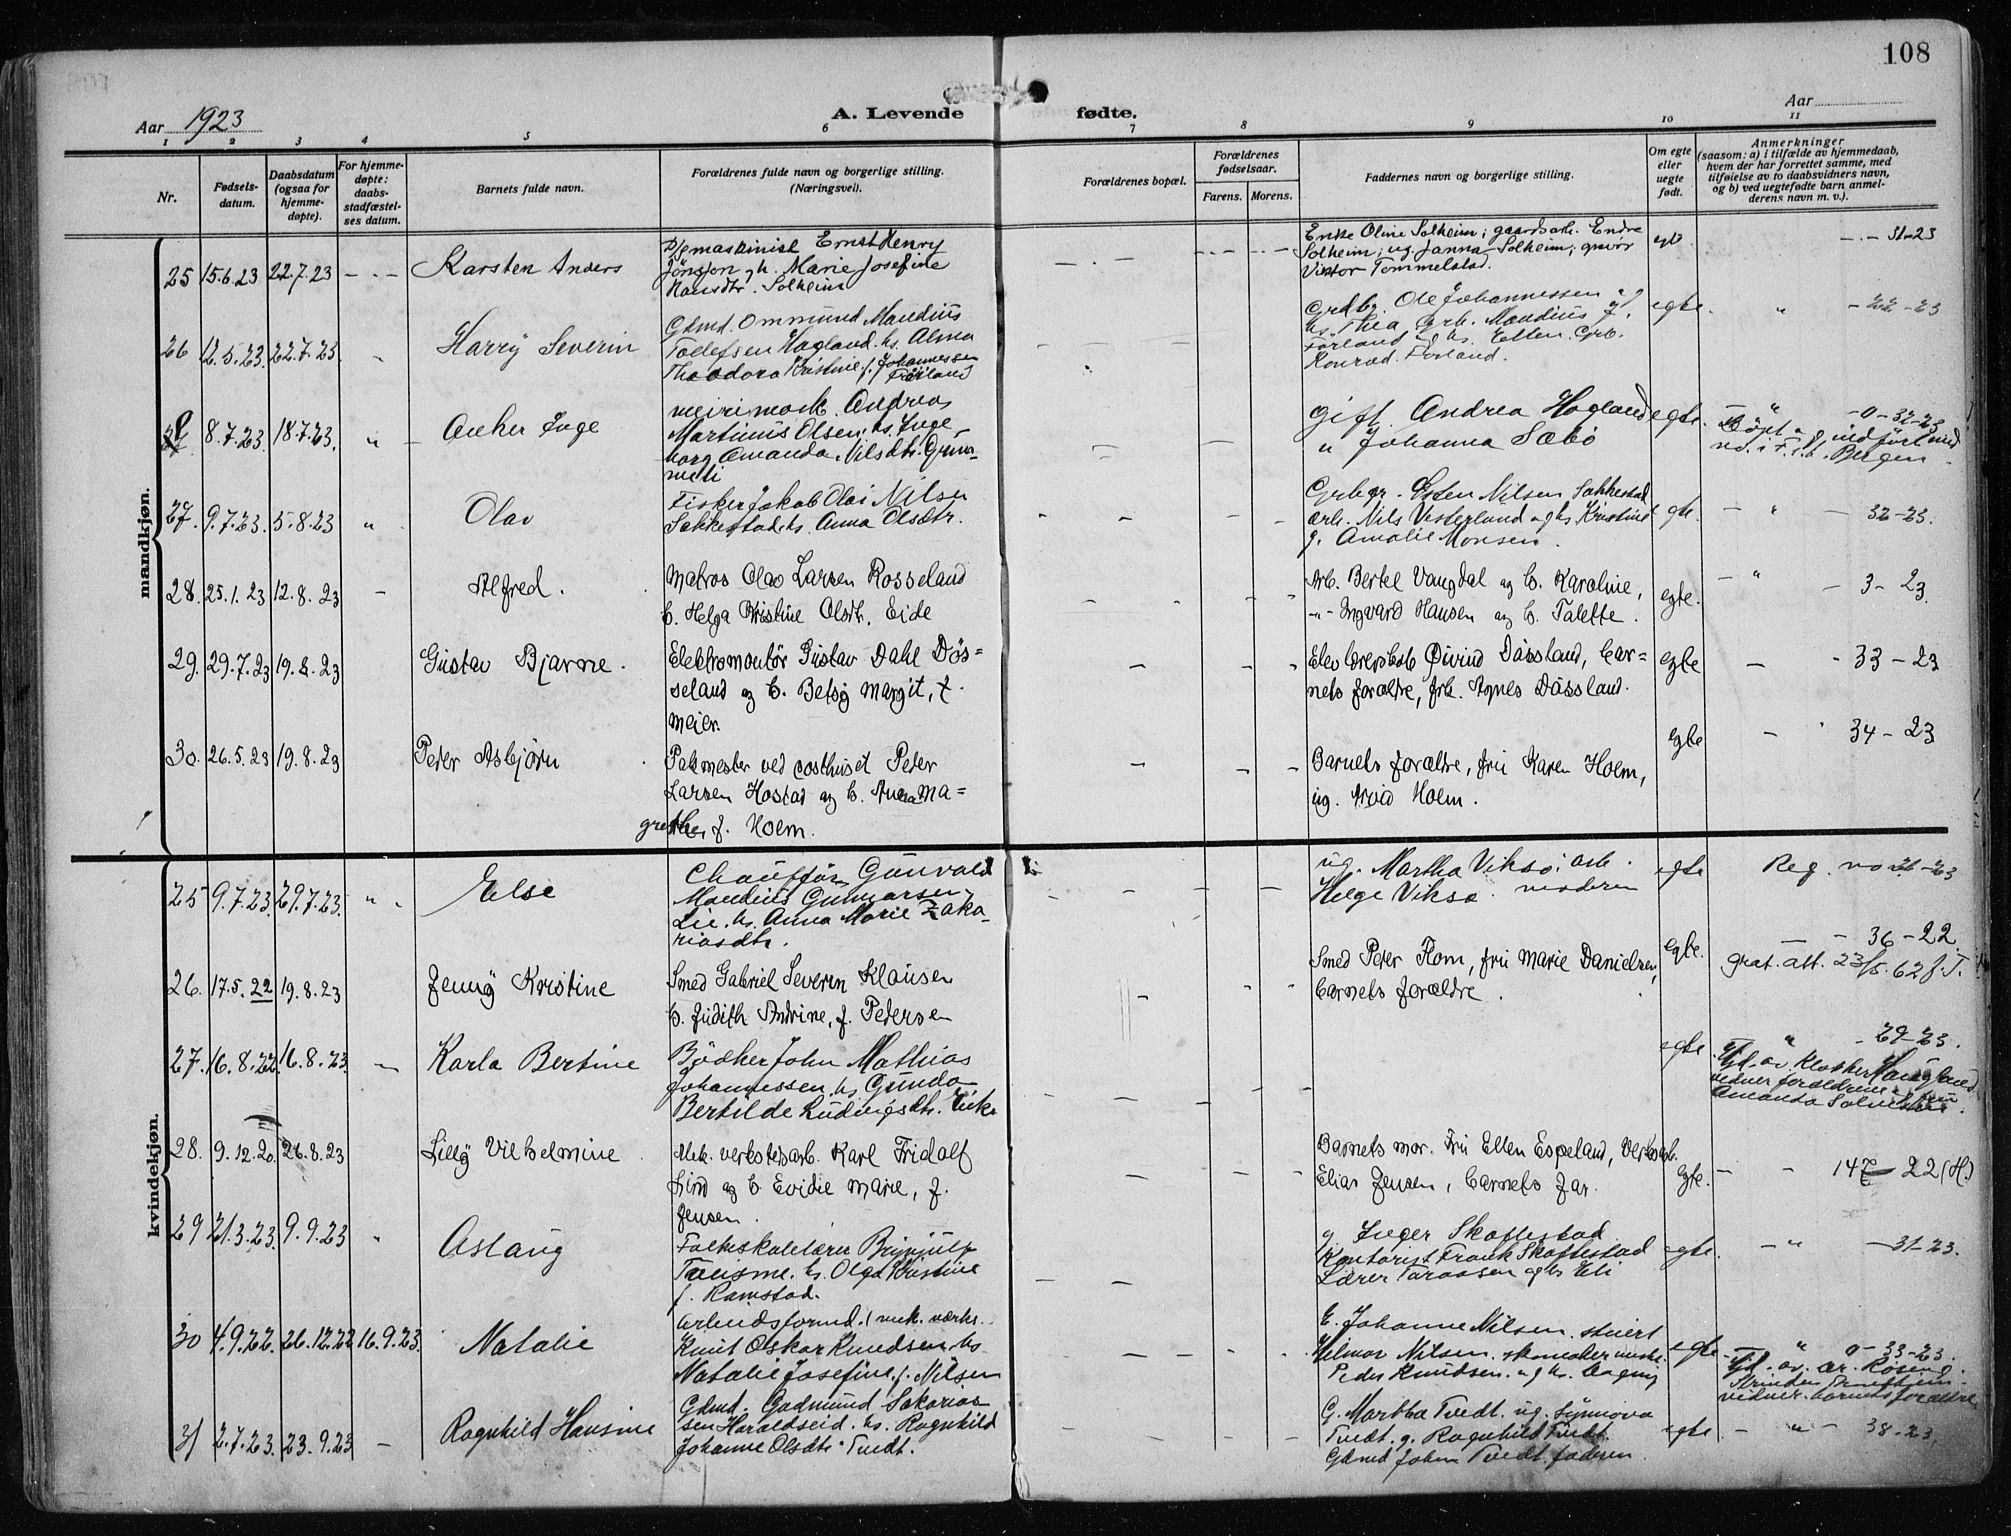 108
Aar 1923
A. Levende fødte.
Aar
1 2 3 4 5 6 7 8 9 10 11
Nr.
Fødsels-
datum.
Daabsdatum
(ogsaa for
hjemme-
døpte).
For hjemme-
døpte:
daabs-
stadfæstel-
ses datum.
Barnets fulde navn.
Forældrenes fulde navn og borgerlige stilling.
(Næringsvei).
Forældrenes bopæl.
Forældrenes
fødselsaar.
Farens. Morens.
Faddernes navn og borgerlige stilling.
Om egte
eller
uegte
født.
Anmerkninger
(saasom: a) i tilfælde av hjemmedaab,
hvem der har forrettet samme, med
tilføielse av to daabsvidners navn,
og b) ved uegtefødte barn anmel-
derens navn m. v.).
mandkjøn.
25 15.6.23 22.7.23 - . - Karsten Anders
maskinist Ernst Henry
Jönsson, h. Marie Josefine
Hansdtr. Solheim
Enke Oline Solheim; gaardsarb. Endre
Solheim; ug. Janna Solheim; gravør
Viktor Tommelstad.
egte - . - 31-23
26 12.5.23. 22.7.23 " Harry Severin
Gdmd. Ommund Maudius
Tollefsen Hagland. hs. Alma
Theodora Kristine, f. Johannessen
Førland
Grdbr. Ole Johannessen og
hs. Thea, Grb. Maudius J.
Førland og hs. Ellen. Grb.
Konrad Førland.
egte. " - 22-23
8.7.23. 18.7.23. " - Anker Inge
meirimask. Andreas
Martinus Olsen; hs. Inge-
borg Amanda Nilsdtr.
gift. Andrea Hagland
" Johanna Sæbö
egte. - " - 0-32-23
Döpt og indført med
no. i Bergen
27. 9.7.23. 5.8.23 " Olav
Fisker Jakob Olai Nilsen
Sakkestad hs. Anna Olsdtr.
Grbr. Østen Nilsen Sakkestad
arb. Nils Vesterlund og hs Kristine
g. Amalie Monsen.
egte. - " - 32-23.
28. 25.1.23 12.8.23 - Alfred.
Matros Olav Larsen Rosseland
h. Helga Kristine Olsdtr. Eide
Arb. Bertel Vangdal og h. Karoline,
-"- Ingvard Hansen og h. Talette.
egte. - " - 3-23.
29. 29.7.23 19.8.23 Gustav Bjarne.
Elektromontör Gustav Dahl Dös=
seland og h. Betsy Margit, f.
Meier.
Elev Øivind Dåssland, bar=
nets forældre, frk. Agnes Dåssland.
egte - - 33-23
30. 26.5.23 19.8.23 Peter Asbjörn
Pakmester ved posthuset Peter
Larsen Hostad og h. Anna Ma=
grethe, f. Holm.
Barnets forældre, fru Karen Holm,
ug. Arvid Holm.
egte - 34-23
kvindekjøn.
25 9.7.23. 29.7.23. " . Else
Chauffør Gunvald
Maudius Gunnarsen
Lie. hs. Anna Marie Zaka-
riasdtr.
ug. Martha Viksö; arb.
Helge Viksö. moderen
egte Reg. no 26-23
26. 17.5.22 19.8.23 Jenny Kristine
Smed Gabriel Severin Klausen
h. Judith Andrine, f. Pedersen
Smed Peter Flom, fru Marie Danielsen,
barnets forældre.
egte. - - 36-22
grat. att. 23/5.62 J.T.
27. 16.8.22. 16.8.23. - Karla Bertine
Bödker John Mathias
Johannessen. hs Gunda
Bertilde Ludvigsdtr.
egte " - 29-23.
Hjd. av. Klokker Haugland
vidner forældrene, fru
Amanda
28. 9.12.20. 26.8.23 Lilly Vilhelmine.
Mek. verkstedarb. Karl Fridolf
Lind og h. Evidie Marie, f.
Jensen.
Barnets mor. Fru Ellen Espeland, Verkstarb.
Elias Jensen, barnets far.
egte. - " 147-22 (H.)
29 21.3.23. 9.9.23 " Aslaug
Folkeskolelærer Brynjulf
hs. Olga Kristine
f. Ramstad.
g. Inger Skoftestad
Kontorist Frank Skoftestad
Lærer og hs Eli
egte. - " - 31-23.
30 4.9.22. 26.12.22 16.9.23. Natalie
Arbeidsformd. (mek. værks.
Knut Oskar Knudsen hs
Natalie Josefine. f. Nilsen
E. Johanne Nilsen. stuert
Hilmar Nilsen. skomaker
Peder Knudsen. og hs. Aagny
egte - " 0-33-23.
Hjd. av. dr.
vidner. barnets forældre
31 2.7.23. 23.9.23 - Ragnhild Hansine
Gdmd. Gudmund Sakarias
sen Haraldseid. hs. Ragnhild
Johanne Olsdtr. Tvedt.
G. Martha Tvedt. ug. Synnova
Tvedt. g. Ragnhild Tvedt.
Gdmd Johan Tvedt. faderen.
egte - " - 38-23.